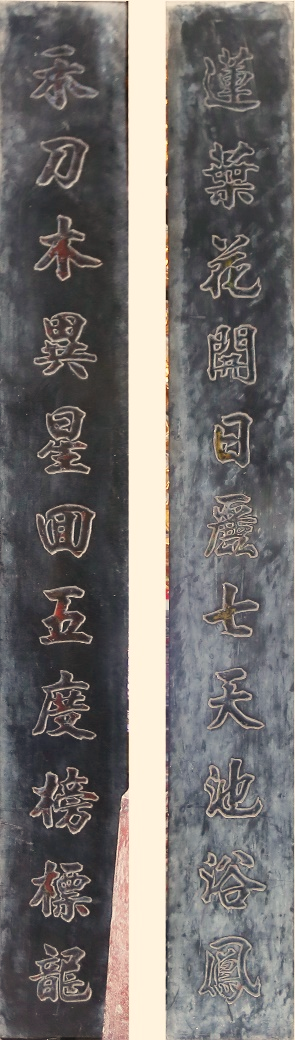 蓮葉花開日麗七天池浴鳳
禾刀木異星回五度榜標龍